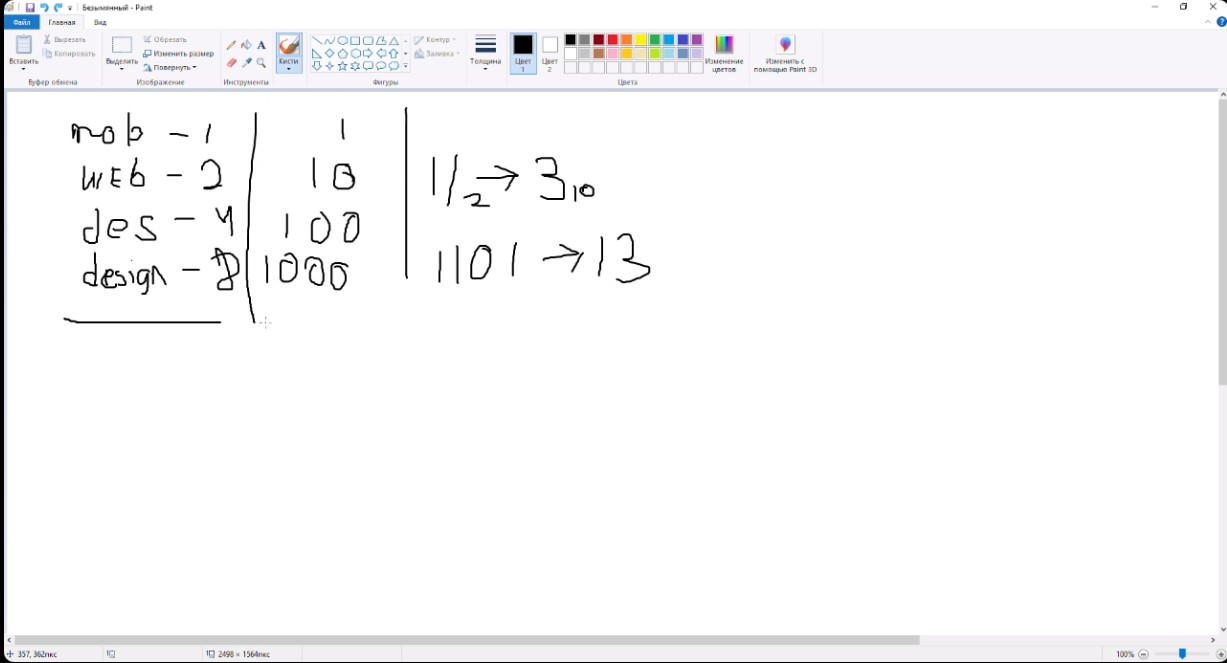 Безымянный - Paint
Файл
Главная
Вид
Вставить
Вырезать
Копировать
Буфер обмена
Выделить
Обрезать
Изменить размер
Повернуть
Изображение
A
Инструменты
Кисти
Контур
Заливка
Фигуры
Толщина
Цвет 1
Цвет 2
Изменение цветов
Цвета
Изменить с помощью Paint 3D
mob - 1 | 1
WEb - 2 | 10
11₂ → 3₁₀
des - 4 | 100
design - 8 | 1000
1101 → 13
357, 362пкс
2498 × 1564пкс
100%